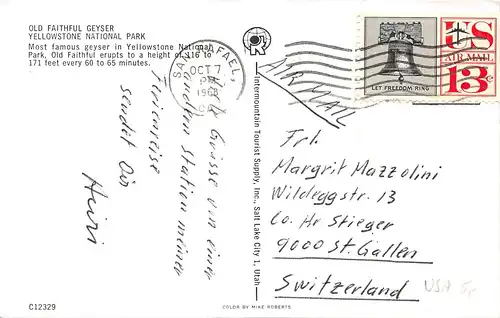 OLD FAITHFUL GEYSER
YELLOWSTONE NATIONAL PARK
Most famous geyser in Yellowstone National
Park, Old Faithful erupts to a height of 116 to
171 feet every 60 to 65 minutes.
SAN RAFAEL,
OCT 7
PM
CA
Grüsse von einer
Station meiner
Ferienreise
sendet Dir
C12329
Intermountain Tourist Supply, Inc., Salt Lake City 1, Utah
COLOR BY MIKE ROBERTS
LET FREEDOM RING
US
AIR MAIL
13c
AIR MAIL
Frl.
Margrit Mazzolini
Wildeggstr. 13
Co. Hr Stieger
9000 St. Gallen
Switzerland
USA